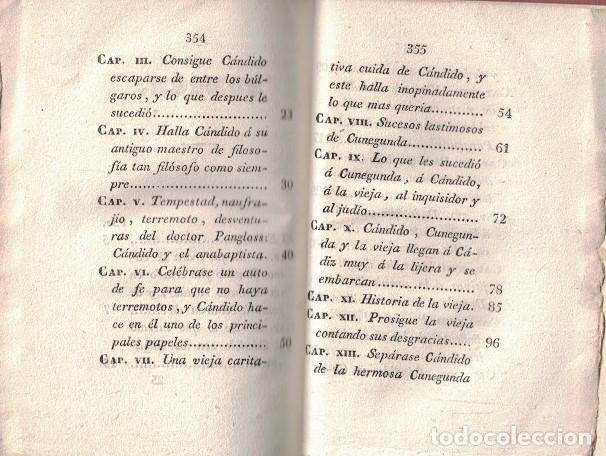 354
CAP. III. Consigue Cándido
escaparse de entre los búl-
garos, y lo que despues le
sucedió.................. 23
CAP. IV. Halla Cándido á su
antiguo maestro de filoso-
fía tan filósofo como siem-
pre........................ 30
CAP. V. Tempestad, naufra-
jio, terremoto, desventu-
ras del doctor Pangloss:
Cándido y el anabaptista. 40
CAP. VI. Celébrase un auto
de fe para que no haya
terremotos, y Cándido ha-
ce en él uno de los princi-
pales papeles............. 50
CAP. VII. Una vieja carita-
355
tiva cuida de Cándido, y
este halla inopinadamente
lo que mas queria......... 54
CAP. VIII. Sucesos lastimosos
de Cunegunda............. 61
CAP. IX. Lo que les sucedió
á Cunegunda, á Cándido,
á la vieja, al inquisidor y
al judío.................. 72
CAP. X. Cándido, Cunegun-
da y la vieja llegan á Cá-
diz muy á la lijera y se
embarcan.................. 78
CAP. XI. Historia de la vieja. 85
CAP. XII. Prosigue la vieja
contando sus desgracias... 96
CAP. XIII. Sepárase Cándido
de la hermosa Cunegunda
todocoleccion.net